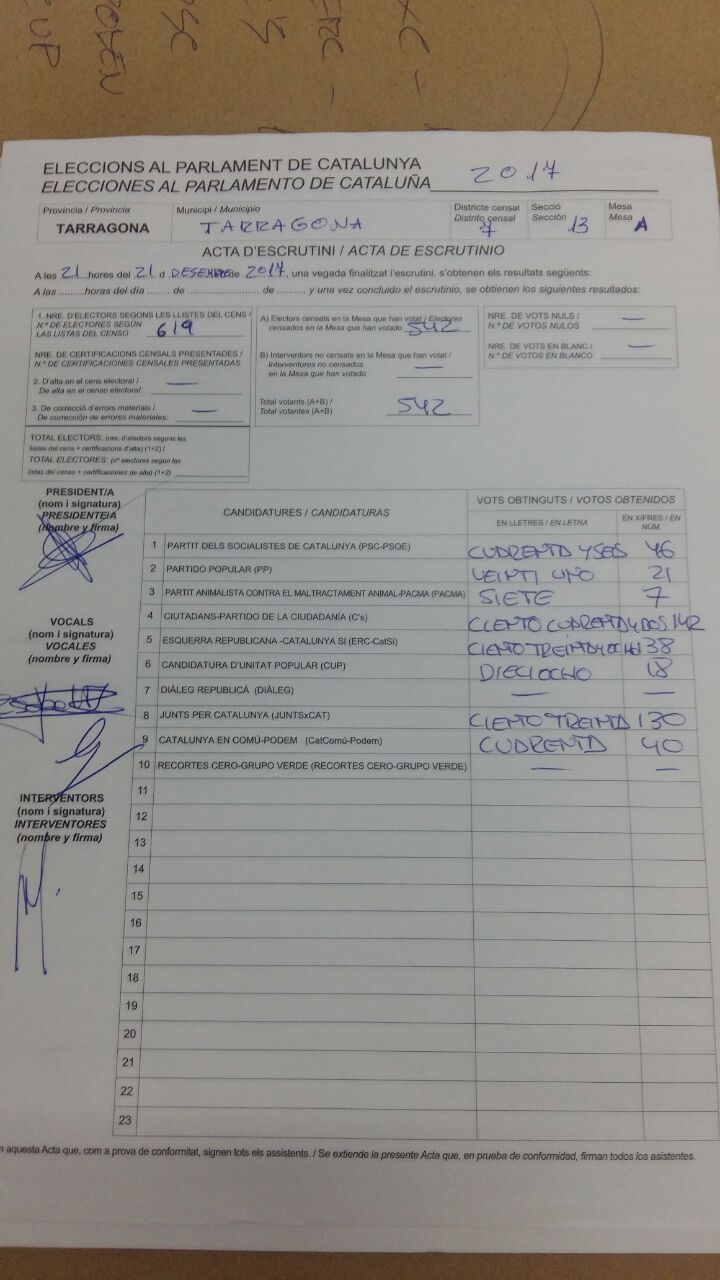 ELECCIONS AL PARLAMENT DE CATALUNYA
ELECCIONES AL PARLAMENTO DE CATALUÑA 2017
Provincia / Provincia
TARRAGONA
Municipi / Municipio
TARRAGONA
Districte censal
Distrito censal
7
Secció
Sección 13
Mesa
Mesa A
ACTA D'ESCRUTINI / ACTA DE ESCRUTINIO
A les 21 hores del 21 d DESEMBRE de 2017, una vegada finalitzat l'escrutini, s'obtenen els resultats següents:
A las .........horas del día ........ de .......................... de ........... y una vez concluido el escrutinio, se obtienen los siguientes resultados:
1. NRE. D'ELECTORS SEGONS LES LLISTES DEL CENS /
N.º DE ELECTORES SEGÚN
LAS LISTAS DEL CENSO 619
NRE. DE CERTIFICACIONS CENSALS PRESENTADES /
N.º DE CERTIFICACIONES CENSALES PRESENTADAS
2. D'alta en el cens electoral / —
De alta en el censo electoral:
3. De correcció d'errors materials / —
De corrección de errores materiales:
TOTAL ELECTORS: (nre. d'electors segons les
llistes del cens + certificacions d'alta) (1+2) /
TOTAL ELECTORES: (nº electores según las
listas del censo + certificaciones de alta) (1+2)
A) Electors censats en la Mesa que han votat / Electores
censados en la Mesa que han votado 542
B) Interventors no censats en la Mesa que han votat /
Interventores no censados
en la Mesa que han votado —
Total votants (A+B) /
Total votantes (A+B) 542
NRE. DE VOTS NULS / —
N.º DE VOTOS NULOS
NRE. DE VOTS EN BLANC / —
N.º DE VOTOS EN BLANCO
PRESIDENT/A
(nom i signatura)
PRESIDENTE/A
(nombre y firma)
VOCALS
(nom i signatura)
VOCALES
(nombre y firma)
INTERVENTORS
(nom i signatura)
INTERVENTORES
(nombre y firma)
CANDIDATURES / CANDIDATURAS
VOTS OBTINGUTS / VOTOS OBTENIDOS
EN LLETRES / EN LETRA
EN XIFRES / EN NÚM.
1 PARTIT DELS SOCIALISTES DE CATALUNYA (PSC-PSOE) CUARENTA Y SEIS 46
2 PARTIDO POPULAR (PP) VEINTI UNO 21
3 PARTIT ANIMALISTA CONTRA EL MALTRACTAMENT ANIMAL-PACMA (PACMA) SIETE 7
4 CIUTADANS-PARTIDO DE LA CIUDADANÍA (C's) CIENTO CUARENTA Y DOS 142
5 ESQUERRA REPUBLICANA -CATALUNYA SI (ERC-CatSí) CIENTO TREINTA Y OCHO 138
6 CANDIDATURA D'UNITAT POPULAR (CUP) DIECIOCHO 18
7 DIÀLEG REPUBLICÀ (DIÀLEG) — —
8 JUNTS PER CATALUNYA (JUNTSxCAT) CIENTO TREINTA 130
9 CATALUNYA EN COMÚ-PODEM (CatComú-Podem) CUARENTA 40
10 RECORTES CERO-GRUPO VERDE (RECORTES CERO-GRUPO VERDE) — —
11
12
13
14
15
16
17
18
19
20
21
22
23
n aquesta Acta que, com a prova de conformitat, signen tots els assistents. / Se extiende la presente Acta que, en prueba de conformidad, firman todos los asistentes.